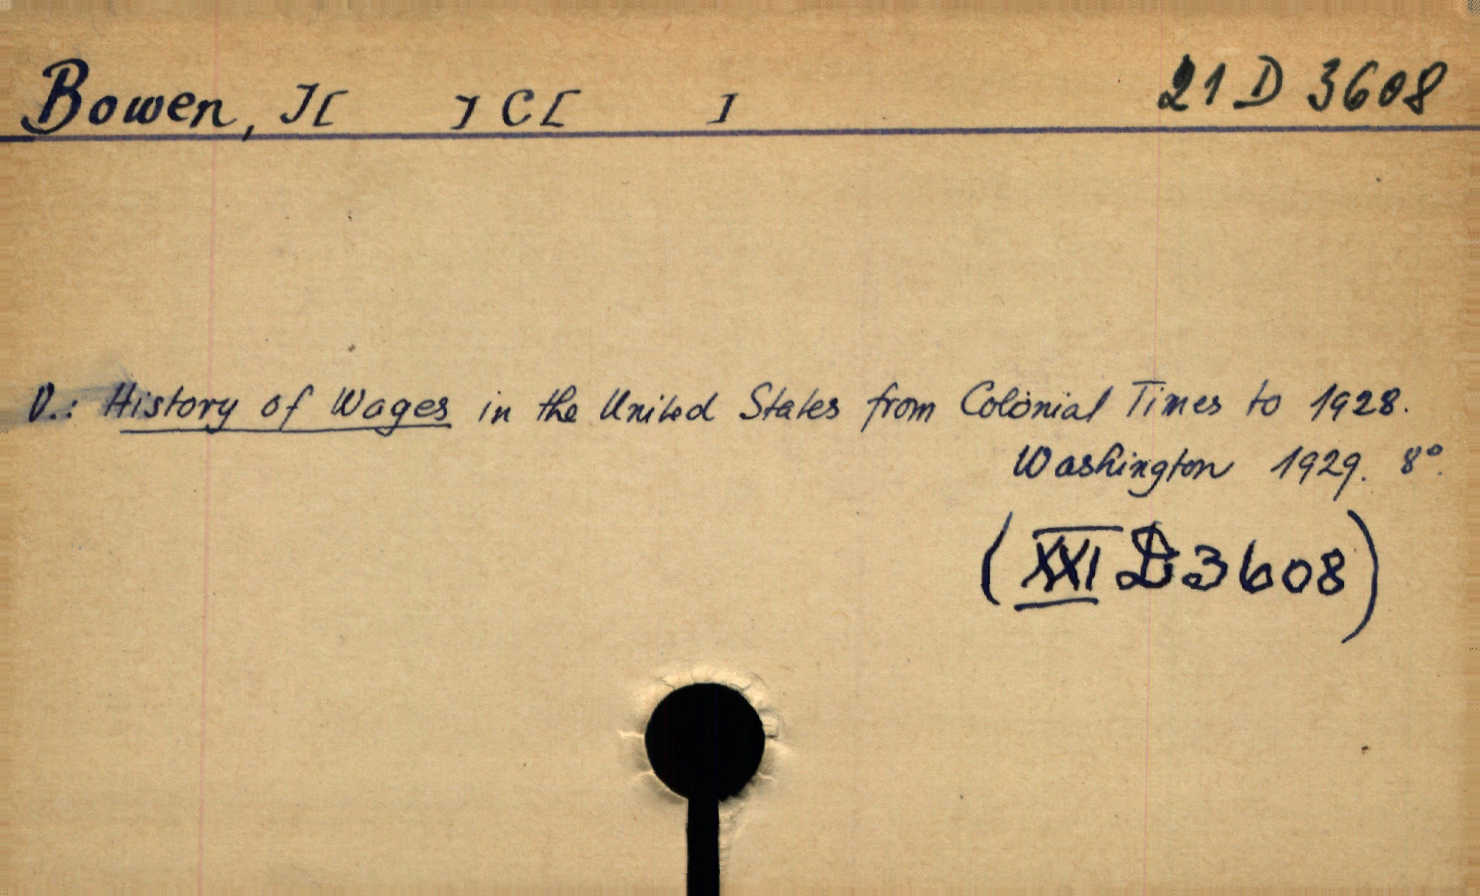 Bowen, J[ ] C[ ] 21 D 3608
V.: History of Wages in the United States from Colonial Times to 1928.
Washington 1929. 8°.
(XXI D 3608)